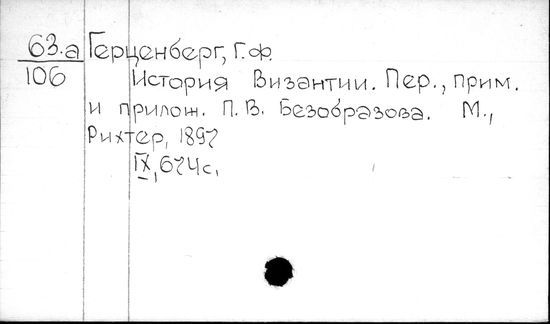 63.а Герценберг, Г.Ф.
106 История Византии. Пер., прим.
и прилож. П.В. Безобразова. М.,
Рихтер, 1897
IX, 674 с.